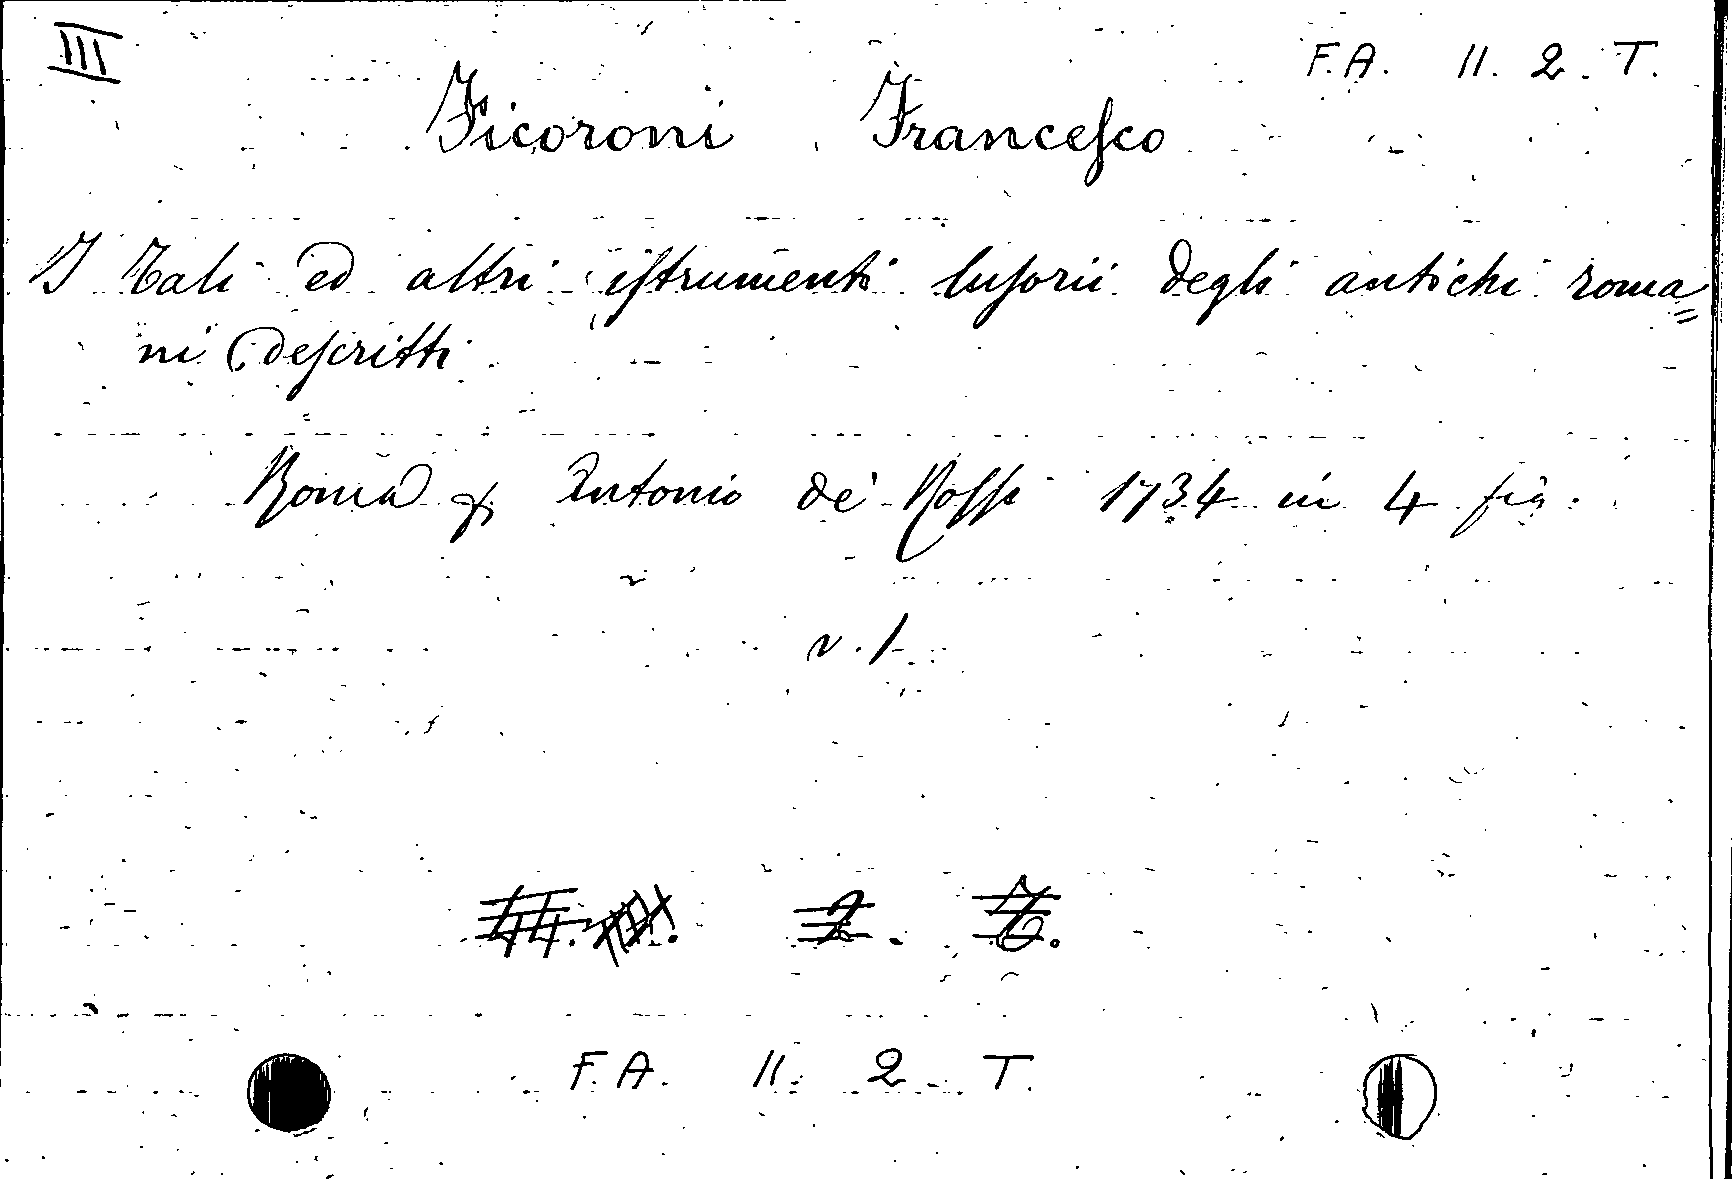 III
F.A. 11. 2. T.
Ficoroni Francesco
I Tali ed altri istrumenti lusorii degli antichi roma=
ni descritti
Roma Antonio de' Rossi 1734 in 4 fig.
v. 1
2.
F.A. 11. 2 T.